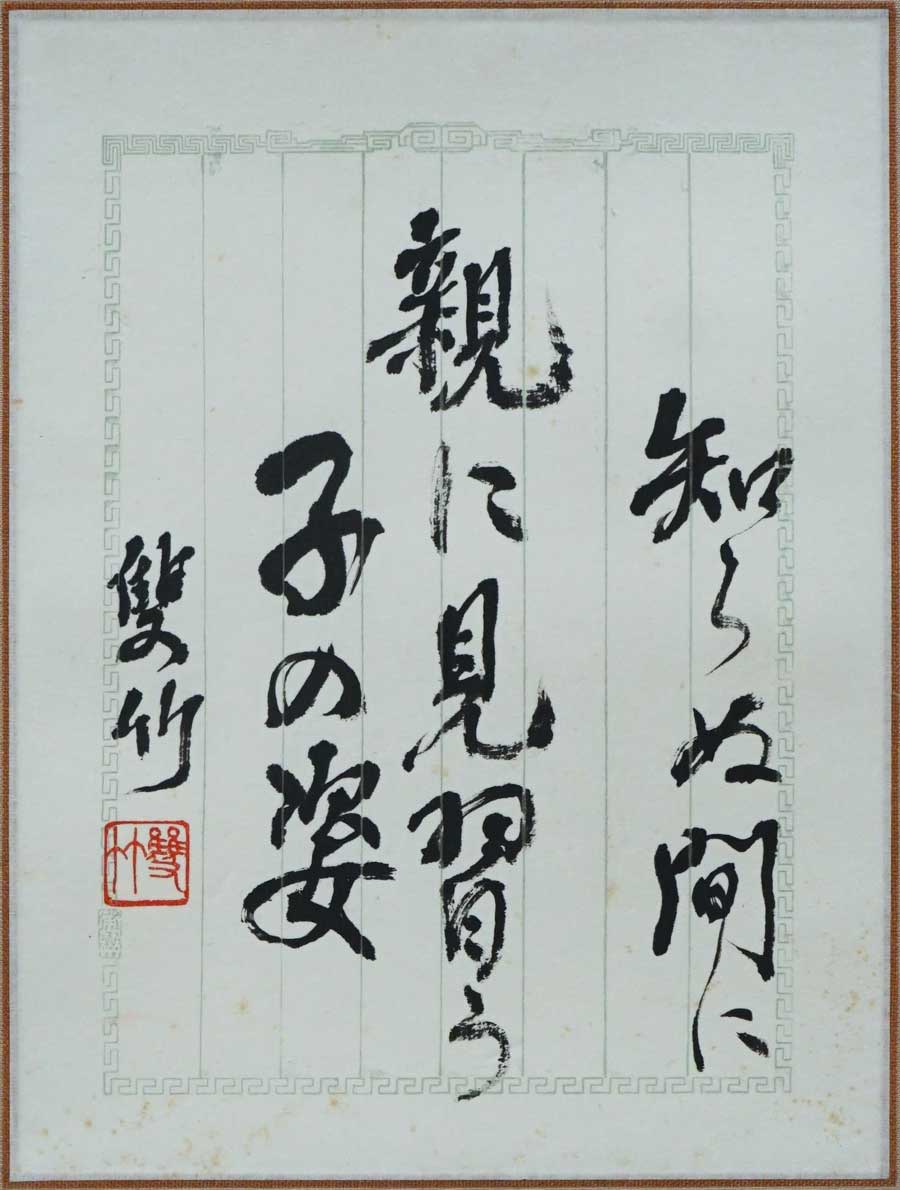 知らぬ間に
親に見習う
子の姿
雙竹
雙竹